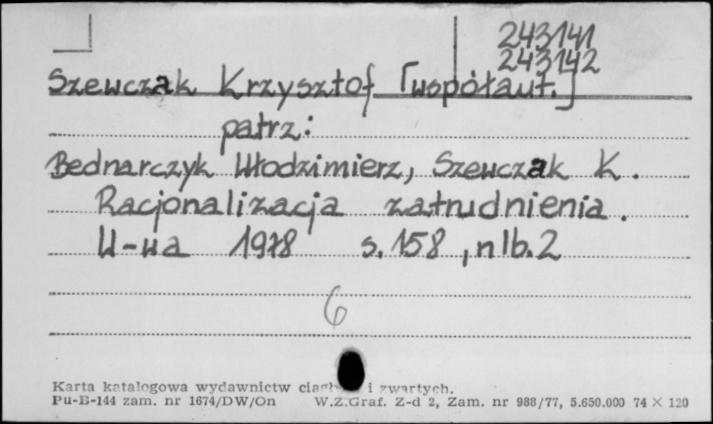 243141
243142
Szewczak Krzysztof [współaut.]
patrz:
Bednarczyk Włodzimierz, Szewczak K.
Racjonalizacja zatrudnienia.
W-wa 1978 s. 158, nlb. 2
6
Karta katalogowa wydawnictw i zwartych.
Pu-B-144 zam. nr 1674/DW/On W.Z.Graf. Z-d 2, Zam. nr 988/77, 5.650.000 74 × 120